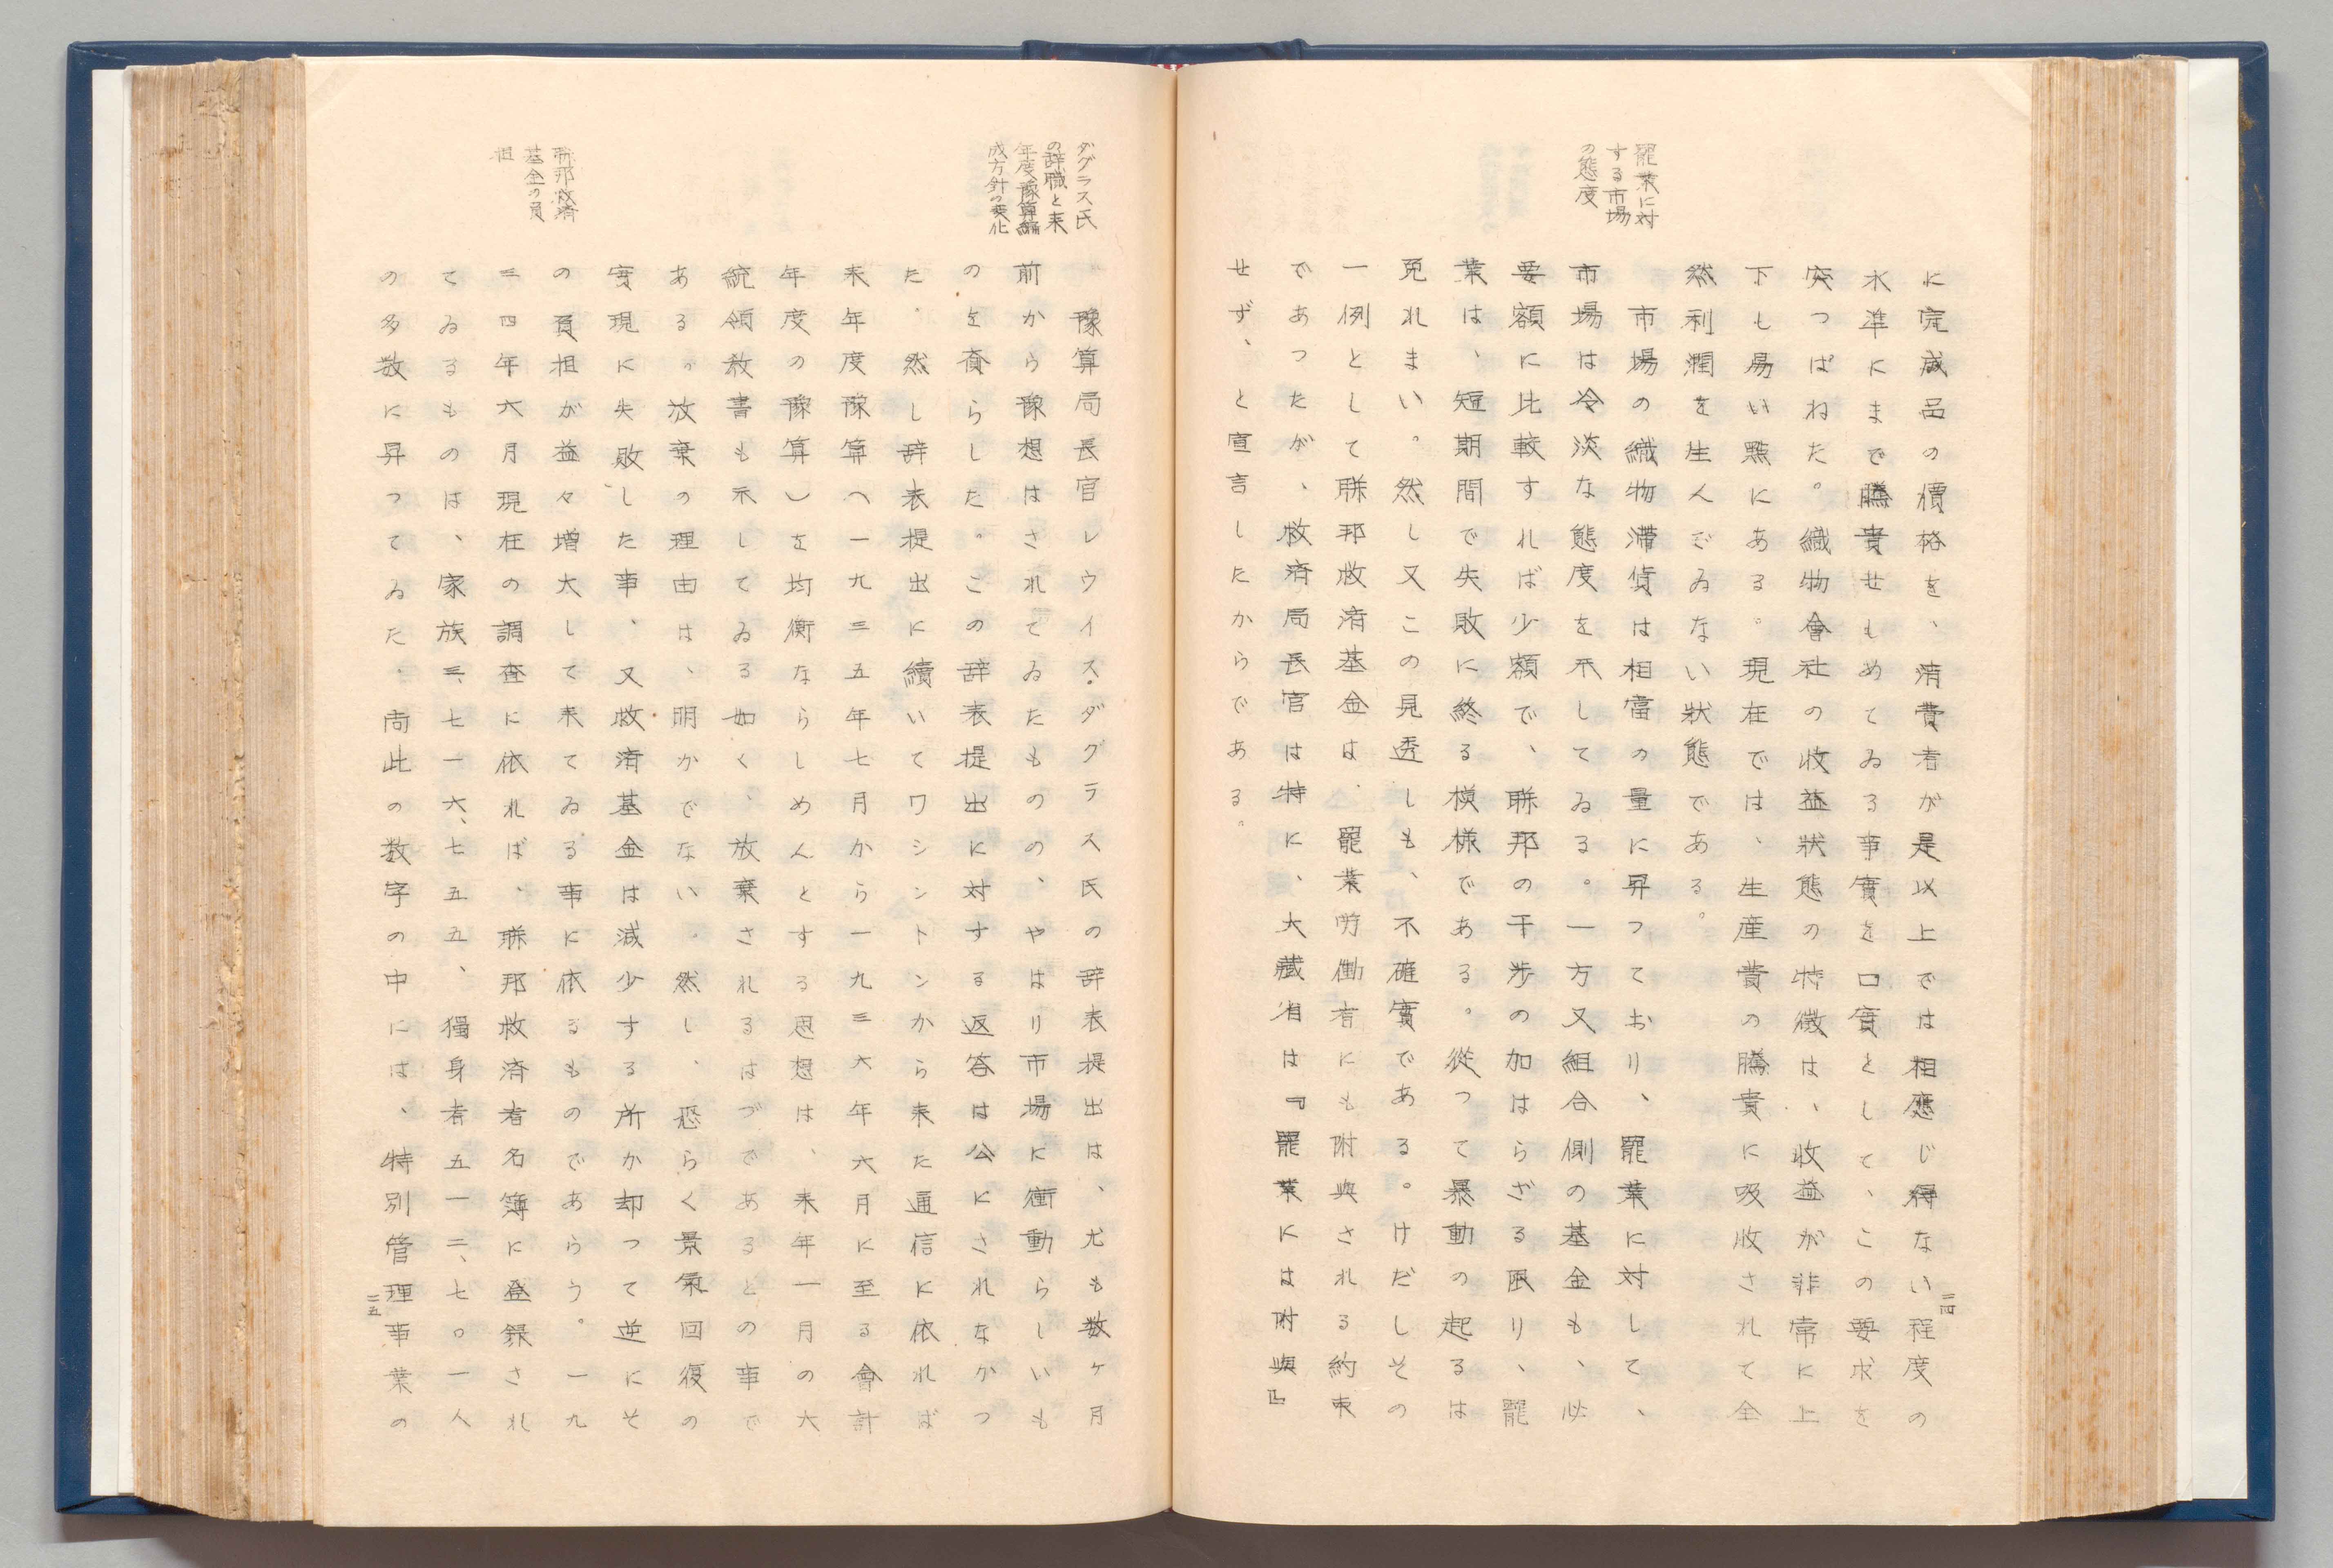 罷業に対
する市場
の態度
に完成品の價格を、消費者が是以上では相應じ得ない程度の
水準にまで騰貴せしめてゐる事實を口實として、この要求を
突つぱねた。織物會社の收益狀態の特徴は、收益が非常に上
下し易い點にある。現在では、生産費の騰貴に吸收されて全
然利潤を生んでゐない狀態である。
市場の織物滞貨は相當の量に昇つており、罷業に対して、
市場は冷淡な態度を示してゐる。一方又組合側の基金も、必
要額に比較すれば少額で、聯邦の干渉の加はらざる限り、罷
業は、短期間で失敗に終る模様である。從つて暴動の起るは
免れまい。然し又この見透しも、不確實である。けだしその
一例として聯邦救済基金は、罷業労働者にも附與される約束
であつたが、救済局長官は特に、大藏省は『罷業には附與』
せず、と宣言したからである。
二四
ダグラス氏
の辞職と来
年度豫算編
成方針の変化
豫算局長官レウイス・ダグラス氏の辞表提出は、尤も数ヶ月
前から豫想はされてゐたものの、やはり市場に衝動らしいも
のを齎らした。この辞表提出に対する返答は公にされなかつ
た。然し辞表提出に續いてワシントンから来た通信に依れば
来年度豫算（一九三五年七月から一九三六年六月に至る會計
年度の豫算）を均衡ならしめんとする思想は、来年一月の大
統領教書も示してゐる如く、放棄されるはづであるとの事で
ある。放棄の理由は、明かでない。然し、恐らく景氣回復の
実現に失敗した事、又救済基金は減少する所か却つて逆にそ
の負担が益々増大して来てゐる事に依るものであらう。一九
三四年六月現在の調査に依れば、聯邦救済者名簿に登録され
てゐるものは、家族三、七一六、七五五、獨身者五一二、七〇一人
の多数に昇つてゐた。尚此の数字の中には、特別管理事業の
聯邦救済
基金の負
担
二五